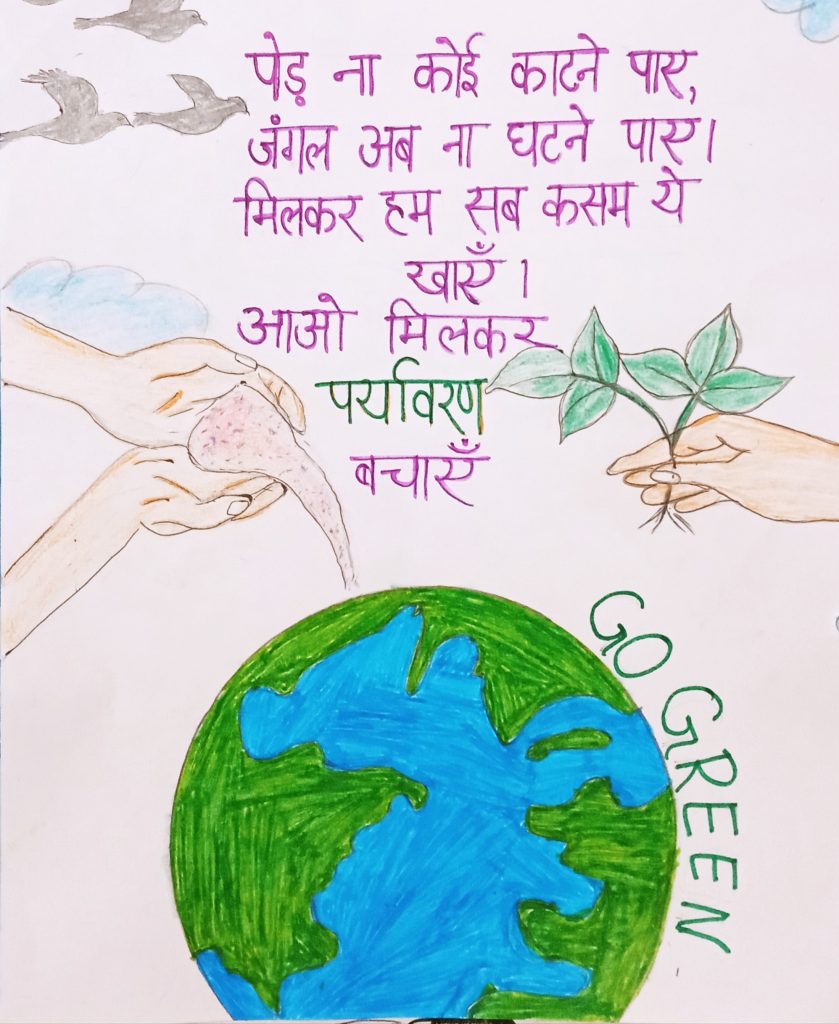 पेड़ ना कोई काटने पाए,
जंगल अब ना घटने पाए।
मिलकर हम सब कसम ये
खाएँ।
आओ मिलकर
पर्यावरण
बचाएँ
GO GREEN